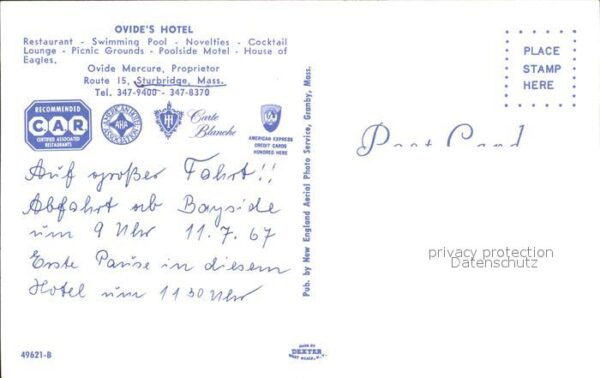 OVIDE'S HOTEL
Restaurant - Swimming Pool - Novelties - Cocktail
Lounge - Picnic Grounds - Poolside Motel - House of
Eagles.
Ovide Mercure, Proprietor
Route 15, Sturbridge, Mass.
Tel. 347-9400 - 347-8370
RECOMMENDED
CAR
CERTIFIED ASSOCIATED
RESTAURANTS
AMERICAN HOTEL
AHA
ASSOCIATION
Carte
Blanche
AMERICAN EXPRESS
CREDIT CARDS
HONORED HERE
Auf großer Fahrt!!
Abfahrt ab Bayside
um 9 Uhr 11.7.67
Erste Pause in diesem
Hotel um 11 30 Uhr
49621-B
Pub. by New England Aerial Photo Service, Granby, Mass.
MADE BY
DEXTER
WEST NYACK, N.Y.
Post Card
PLACE
STAMP
HERE
privacy protection
Datenschutz